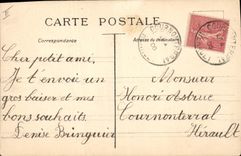 CARTE POSTALE
Correspondance
Adresse du destinataire
Cher petit ami,
Je t'envoie un
gros baiser et mes
bons souhaits.
Denise Bringuier
Monsieur
Honoré Obstruc
Cournonterral
Hérault